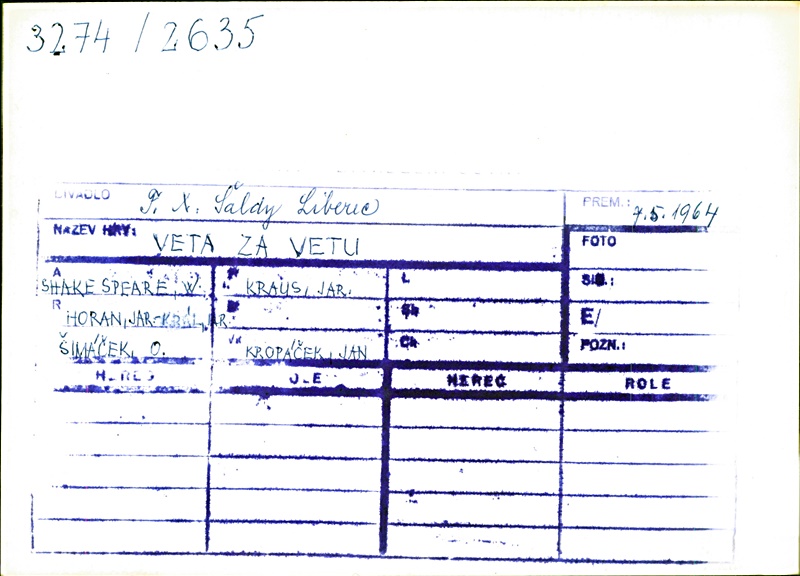 3274 / 2635
DIVADLO F. X. Šaldy Liberec PREM.: 7.5.1964
NÁZEV HRY: VETA ZA VETU FOTO
A SHAKESPEARE, W. KRAUS, JAR. L SIG.:
R HORAN, JAR.-KRÁL, JAR. E/
ŠIMÁČEK, O. KROPÁČEK, JAN Ch POZN.:
HEREC HEREC ROLE